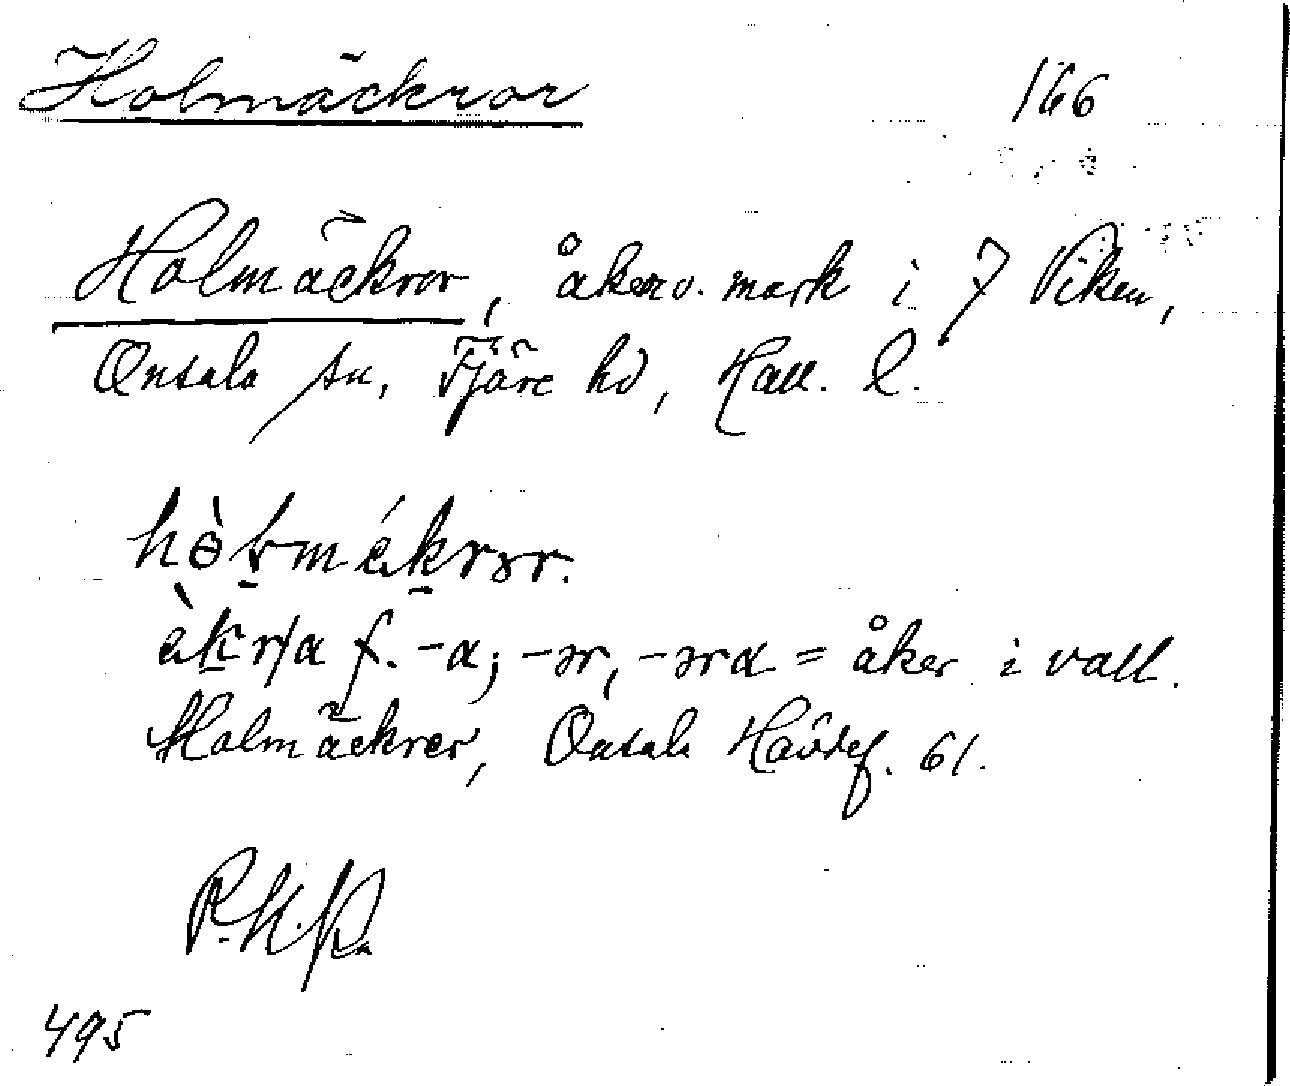 Holmäckror 166
Holmäckror, åker o. mark i 7 Viken,
Onsala sn, Fjäre hd, Hall. l.
hòḷmákrɔr.
àkr/a f. -a; -ər, -əra = åker i vall.
Holmäckrer, Onsala Hävdef. 61.
495